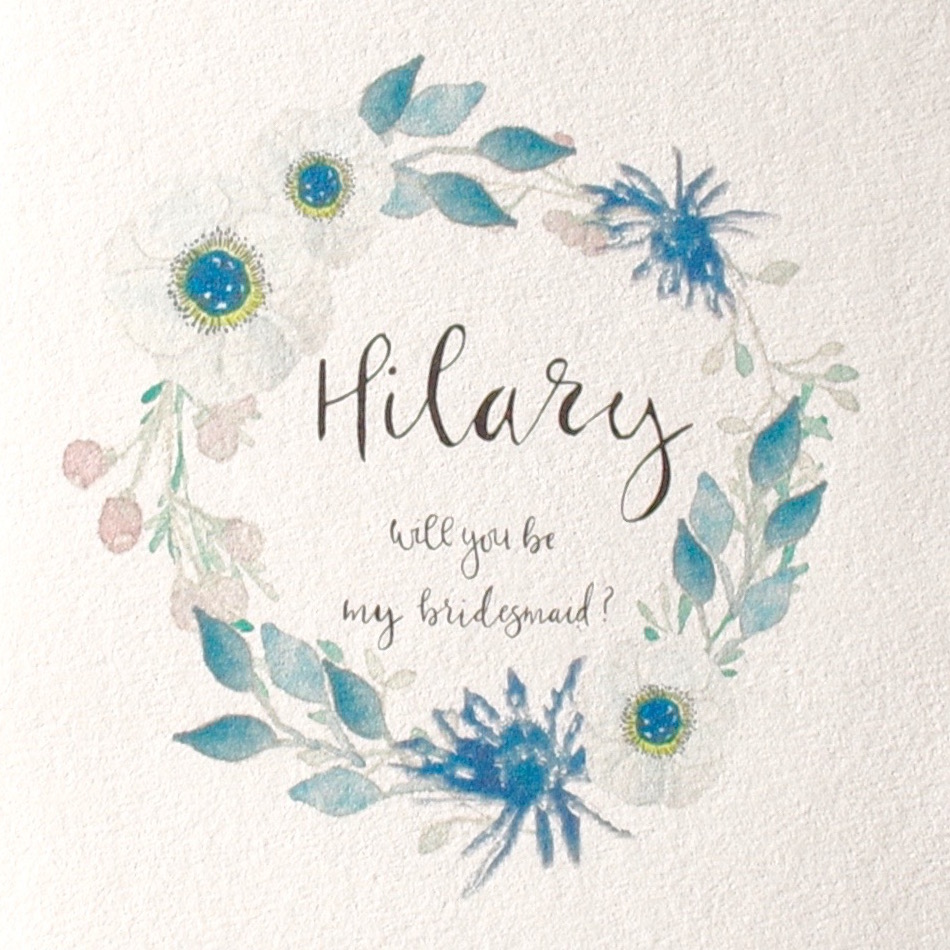 Hilary
will you be
my bridesmaid?